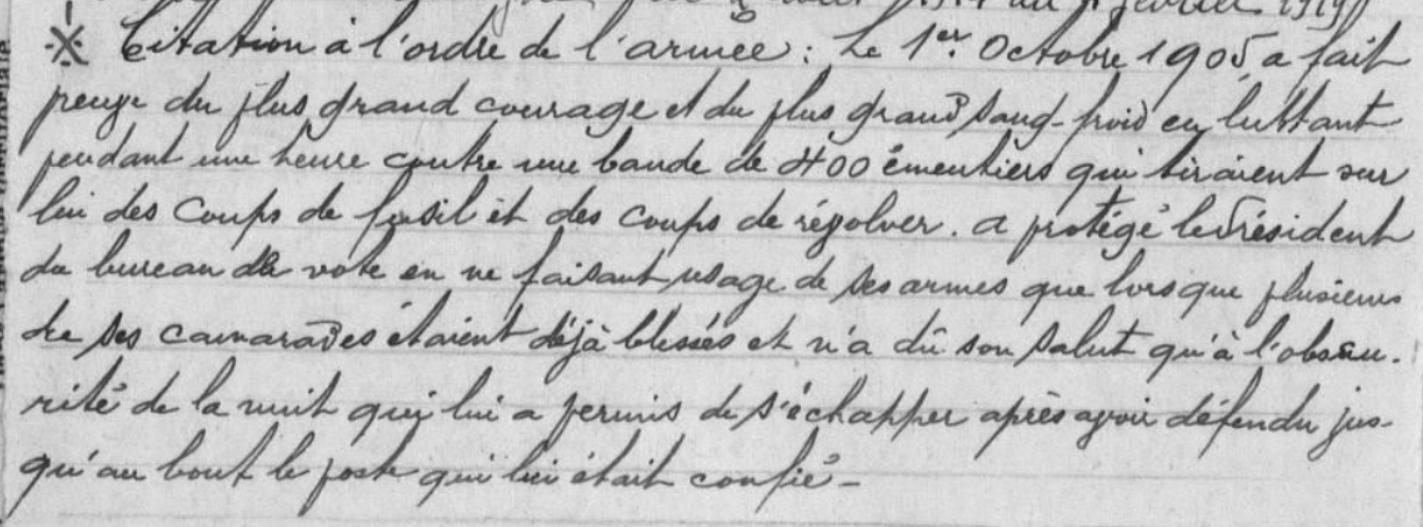 août 1914 au février 1919
※ Citation à l'ordre de l'armée : Le 1er Octobre 1905 a fait
preuve du plus grand courage et du plus grand sang-froid en luttant
pendant une heure contre une bande de 400 émeutiers qui tiraient sur
lui des coups de fusil et des coups de révolver. a protégé le Président
du bureau de vote en ne faisant usage de ses armes que lorsque plusieurs
de ses camarades étaient déjà blessés et n'a dû son salut qu'à l'obscu-
rité de la nuit qui lui a permis de s'échapper après avoir défendu jus-
qu'au bout le poste qui lui était confié -